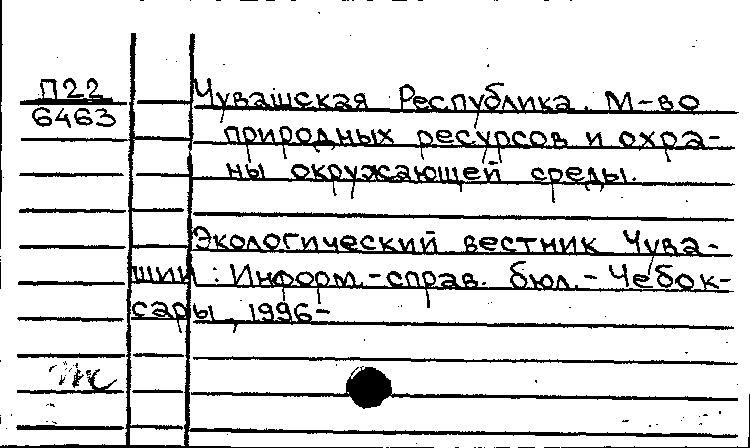 П22
6463
Чувашская Республика. М-во
природных ресурсов и охра-
ны окружающей среды.
Экологический вестник Чува-
шии : Информ.-справ. бюл.- Чебок-
сары, 1996-